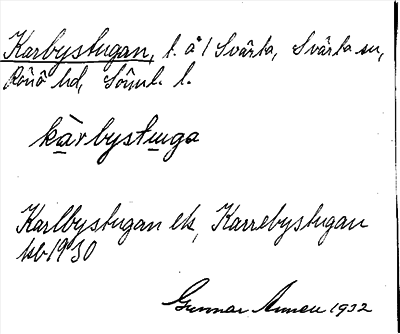 Karbystugan, t. å 1 Svärta, Svärta sn,
Rönö hd, Södml. l.
kàrbystuga
Karlbystugan ek, Karrebystugan
kb 1930
Gunnar Annell 1932